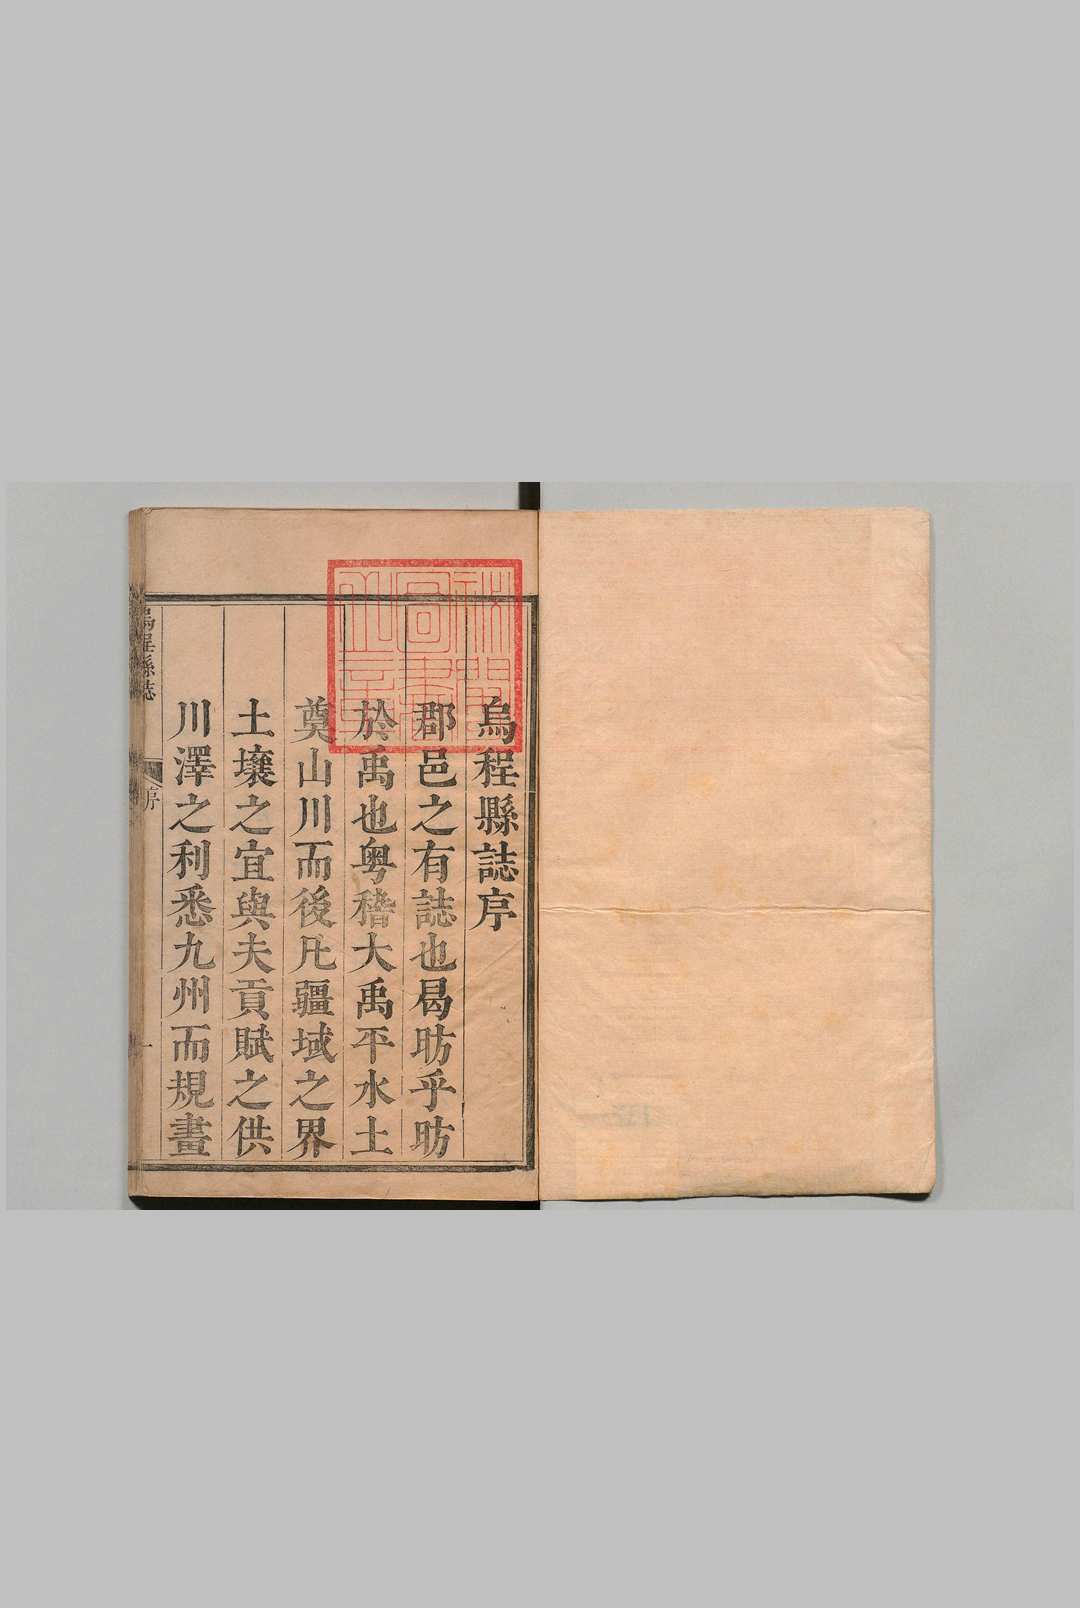 烏程縣誌序
郡邑之有誌也曷昉乎昉
於禹也粤稽大禹平水土
奠山川而後凡疆域之界
土壤之宜與夫貢賦之供
川澤之利悉九州而規畫
烏程縣誌
序
一
秘閣圖書之章